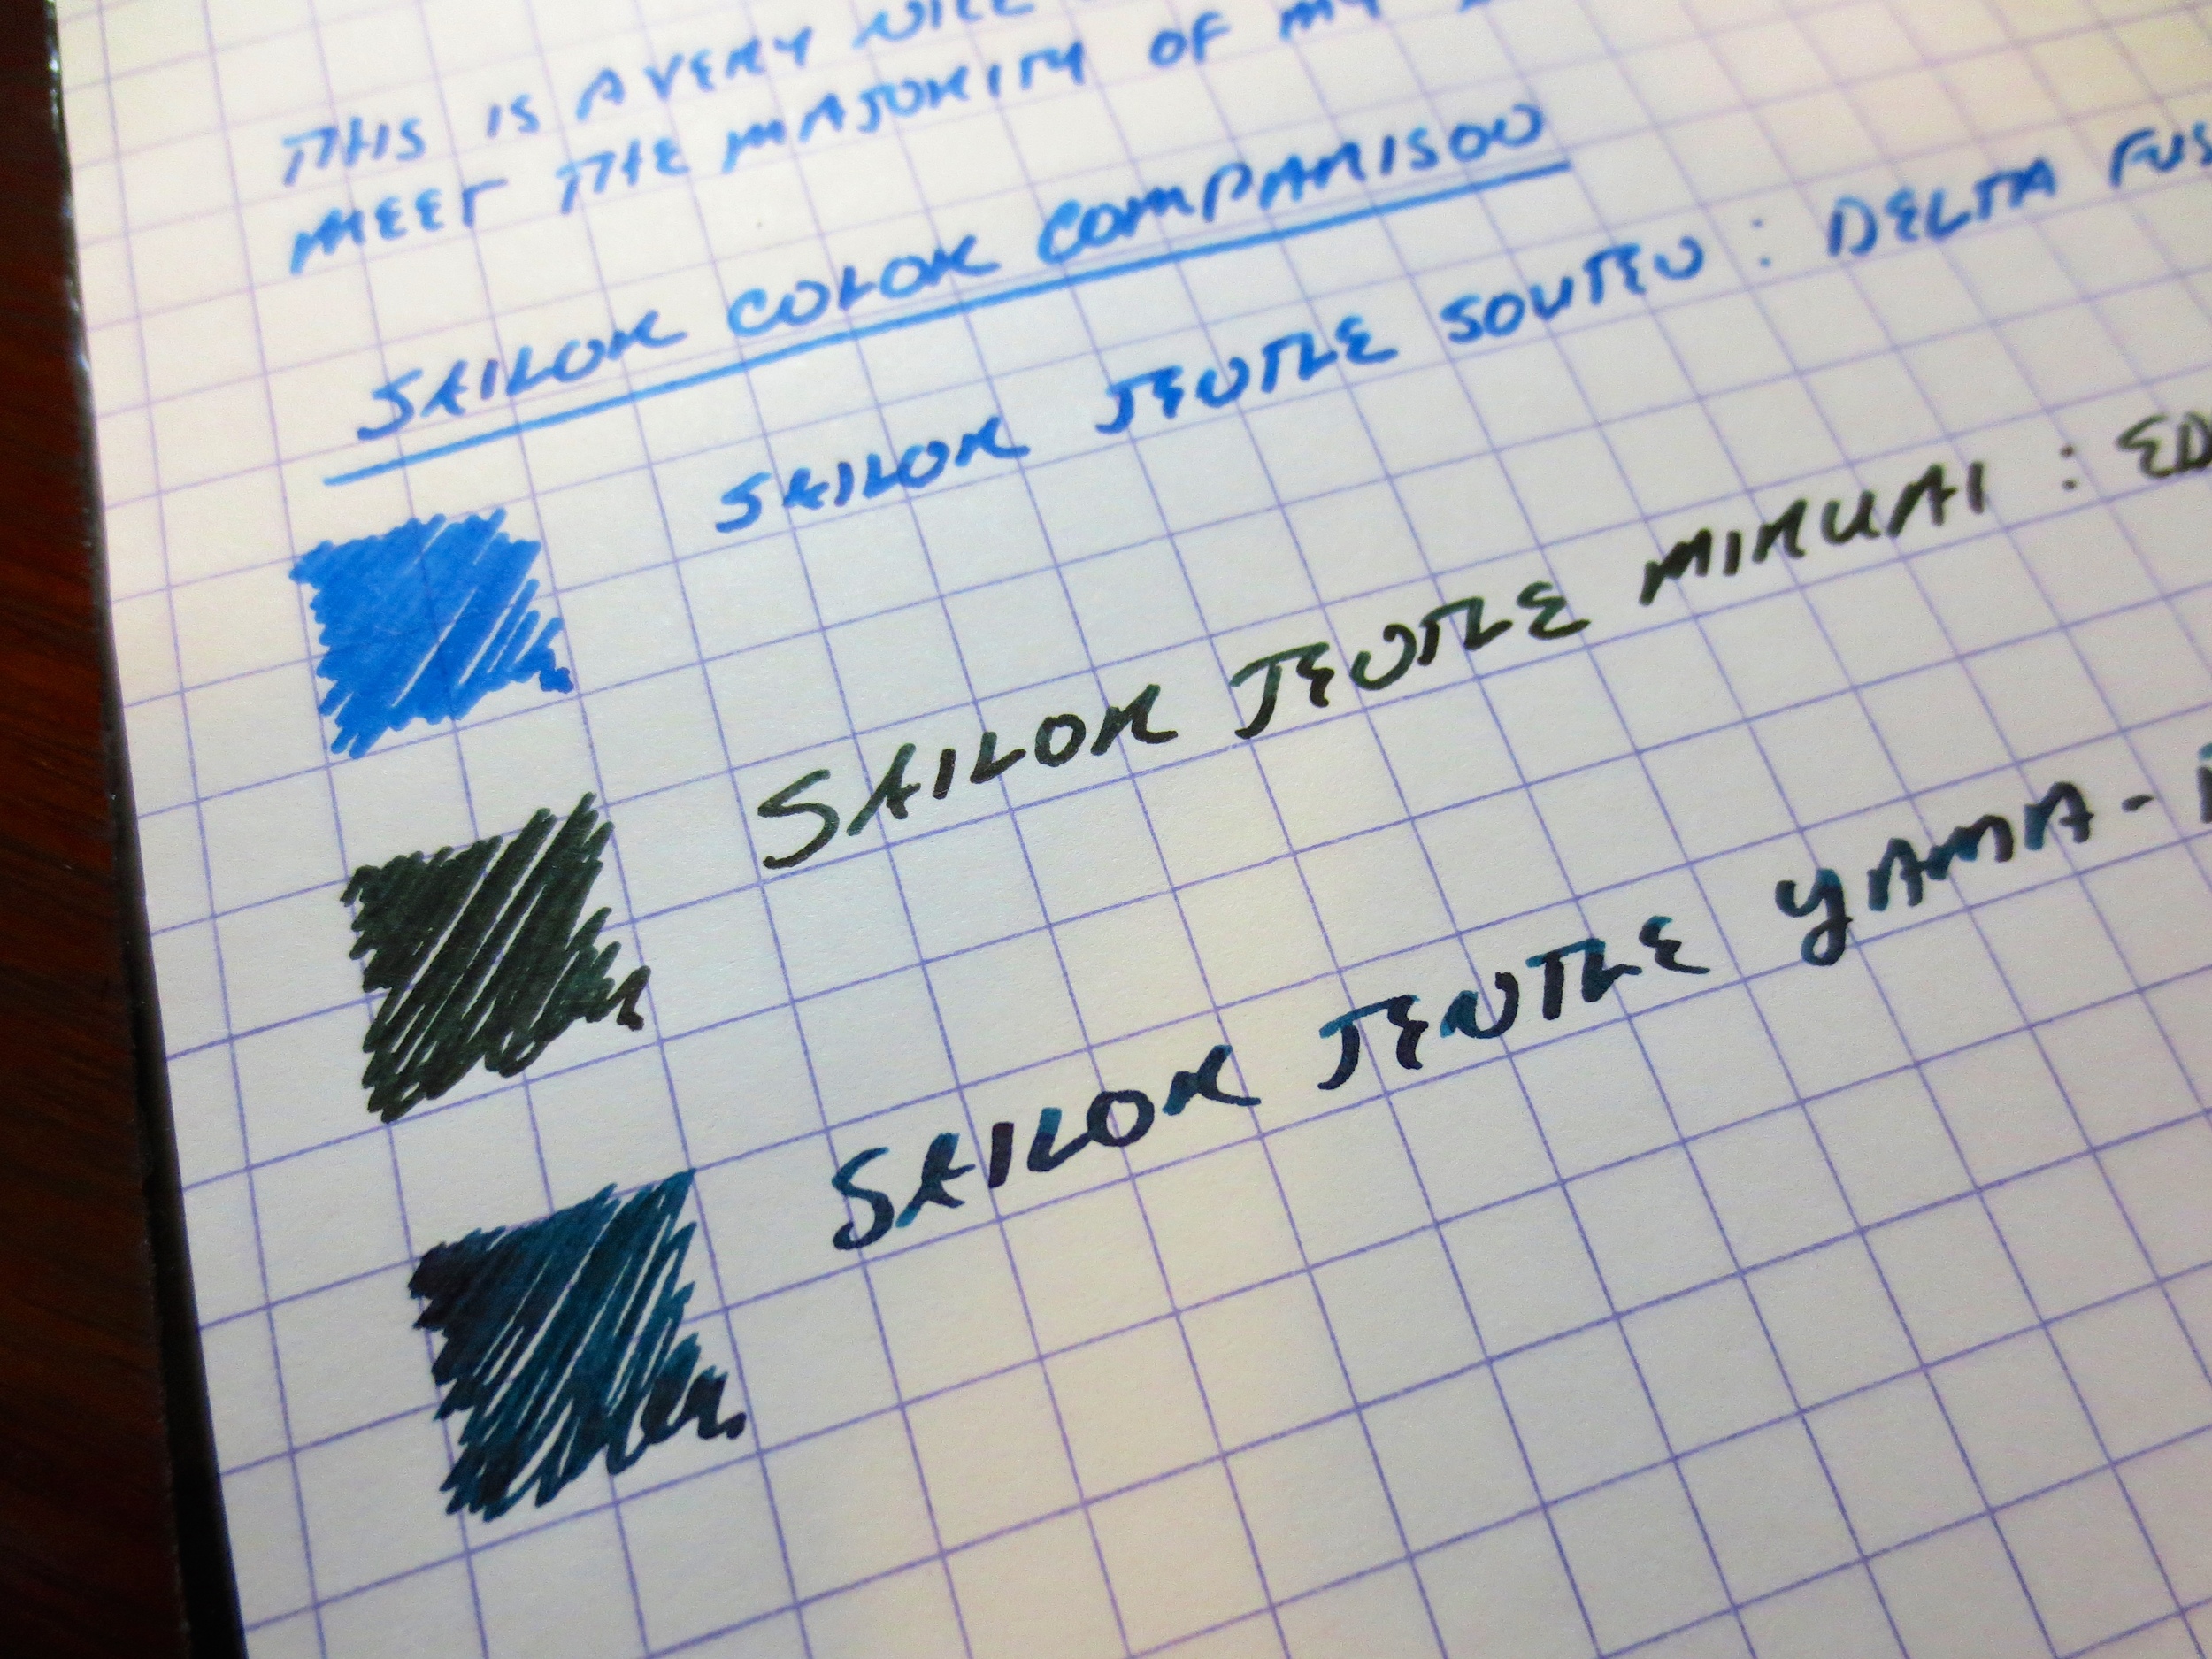 THIS IS A VERY NICE
MEET THE MAJORITY OF MY
SAILOR COLOR COMPARISON
SAILOR JENTLE SOUTEN : DELTA FUS
SAILOR JENTLE MIRUAI : ED
SAILOR JENTLE YAMA-